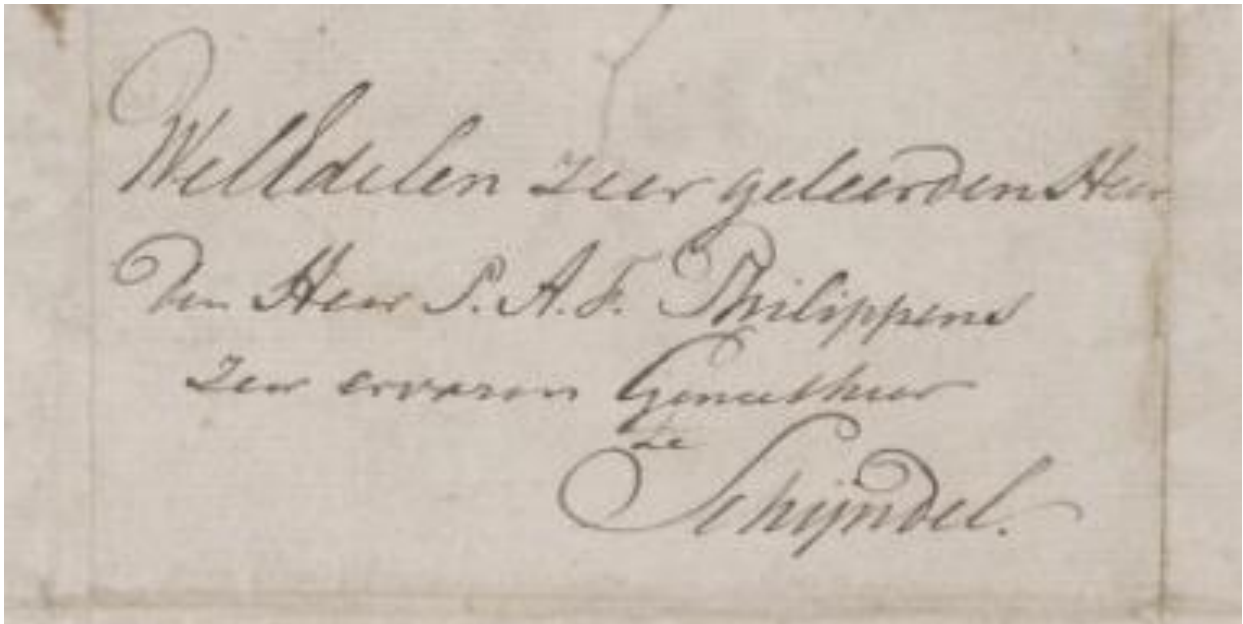 WelEdelen zeer geleerden Heer
den Heer P. A. F. Philippens
zeer ervaren Geneesheer
te
Schijndel.